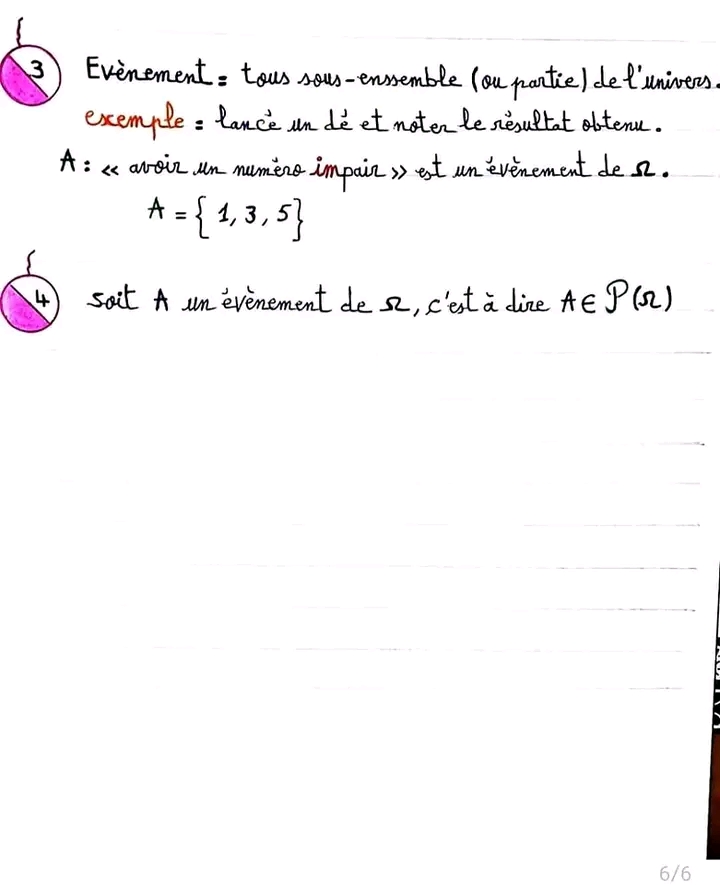 3 Evènement : tous sous-enssemble (ou partie) de l'univers.
exemple : lancé un dé et noter le résultat obtenu.
A : « avoir un numéro impair » est un évènement de Ω.
A = { 1, 3, 5}
4 soit A un évènement de Ω, c'est à dire A ∈ P(Ω)
6/6